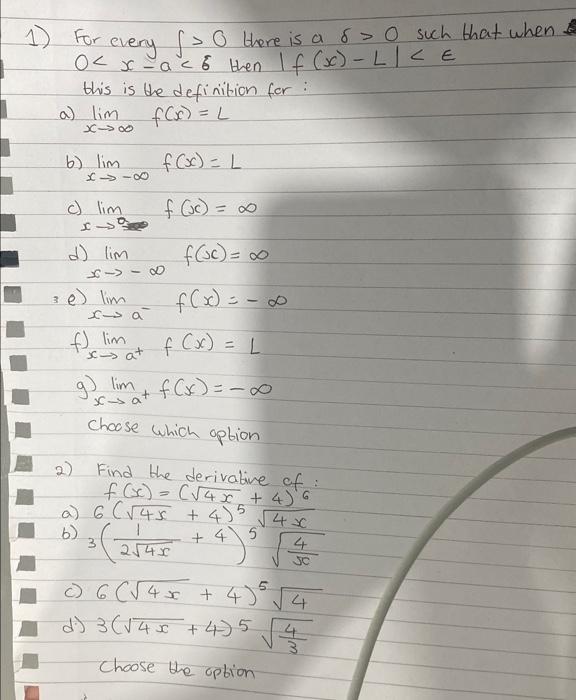 1) For every ∫ > 0 there is a δ > 0 such that when
0 < x - a < δ then |f(x) - L| < ε
this is the definition for :
a) lim x→∞ f(x) = L
b) lim x→-∞ f(x) = L
c) lim x→ f(x) = ∞
d) lim x→-∞ f(x) = ∞
e) lim x→a⁻ f(x) = -∞
f) lim x→a⁺ f(x) = L
g) lim x→a⁺ f(x) = -∞
choose which option
2) Find the derivative of :
f(x) = (√4x + 4)⁶
a) 6(√4x + 4)⁵ √4x
b) 3(1/(2√4x) + 4)⁵ √(4/x)
c) 6(√4x + 4)⁵ √4
d) 3(√4x + 4)⁵ √(4/3)
Choose the option